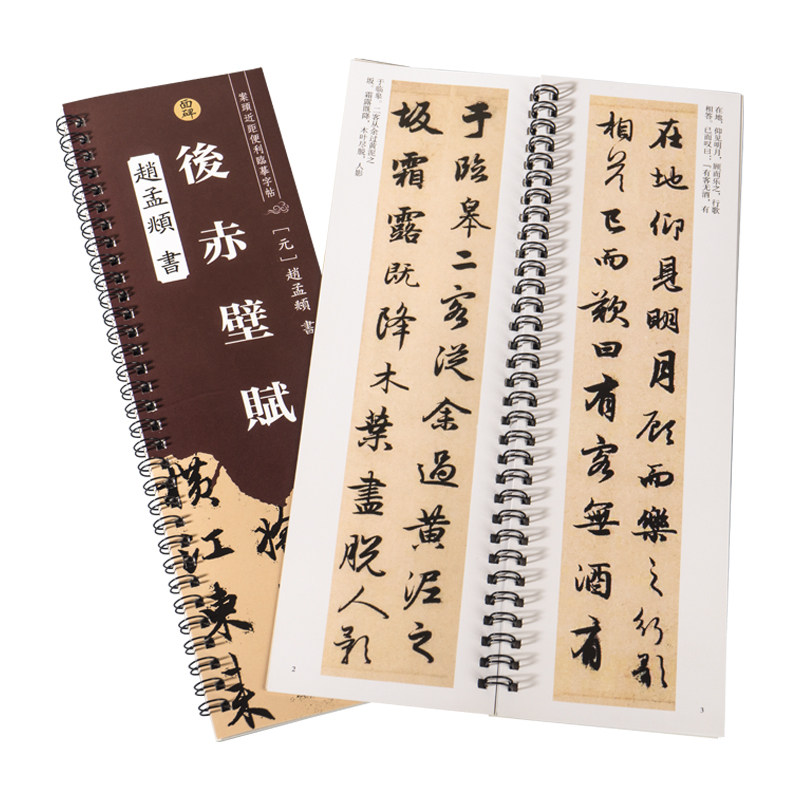 面碑
案頭近距便利臨摹字帖
［元］趙孟頫 書
後赤壁賦
趙孟頫 書
橫江東來
于临皋。二客从余过黄泥之
坂。霜露既降，木叶尽脱，人影
于臨皋二客從余過黄泥之
坂霜露既降木葉盡脱人影
2
在地，仰见明月，顾而乐之，行歌
相答。已而叹曰：“有客无酒，有
在地仰見明月顧而樂之行歌
相答已而歎曰有客無酒有
3